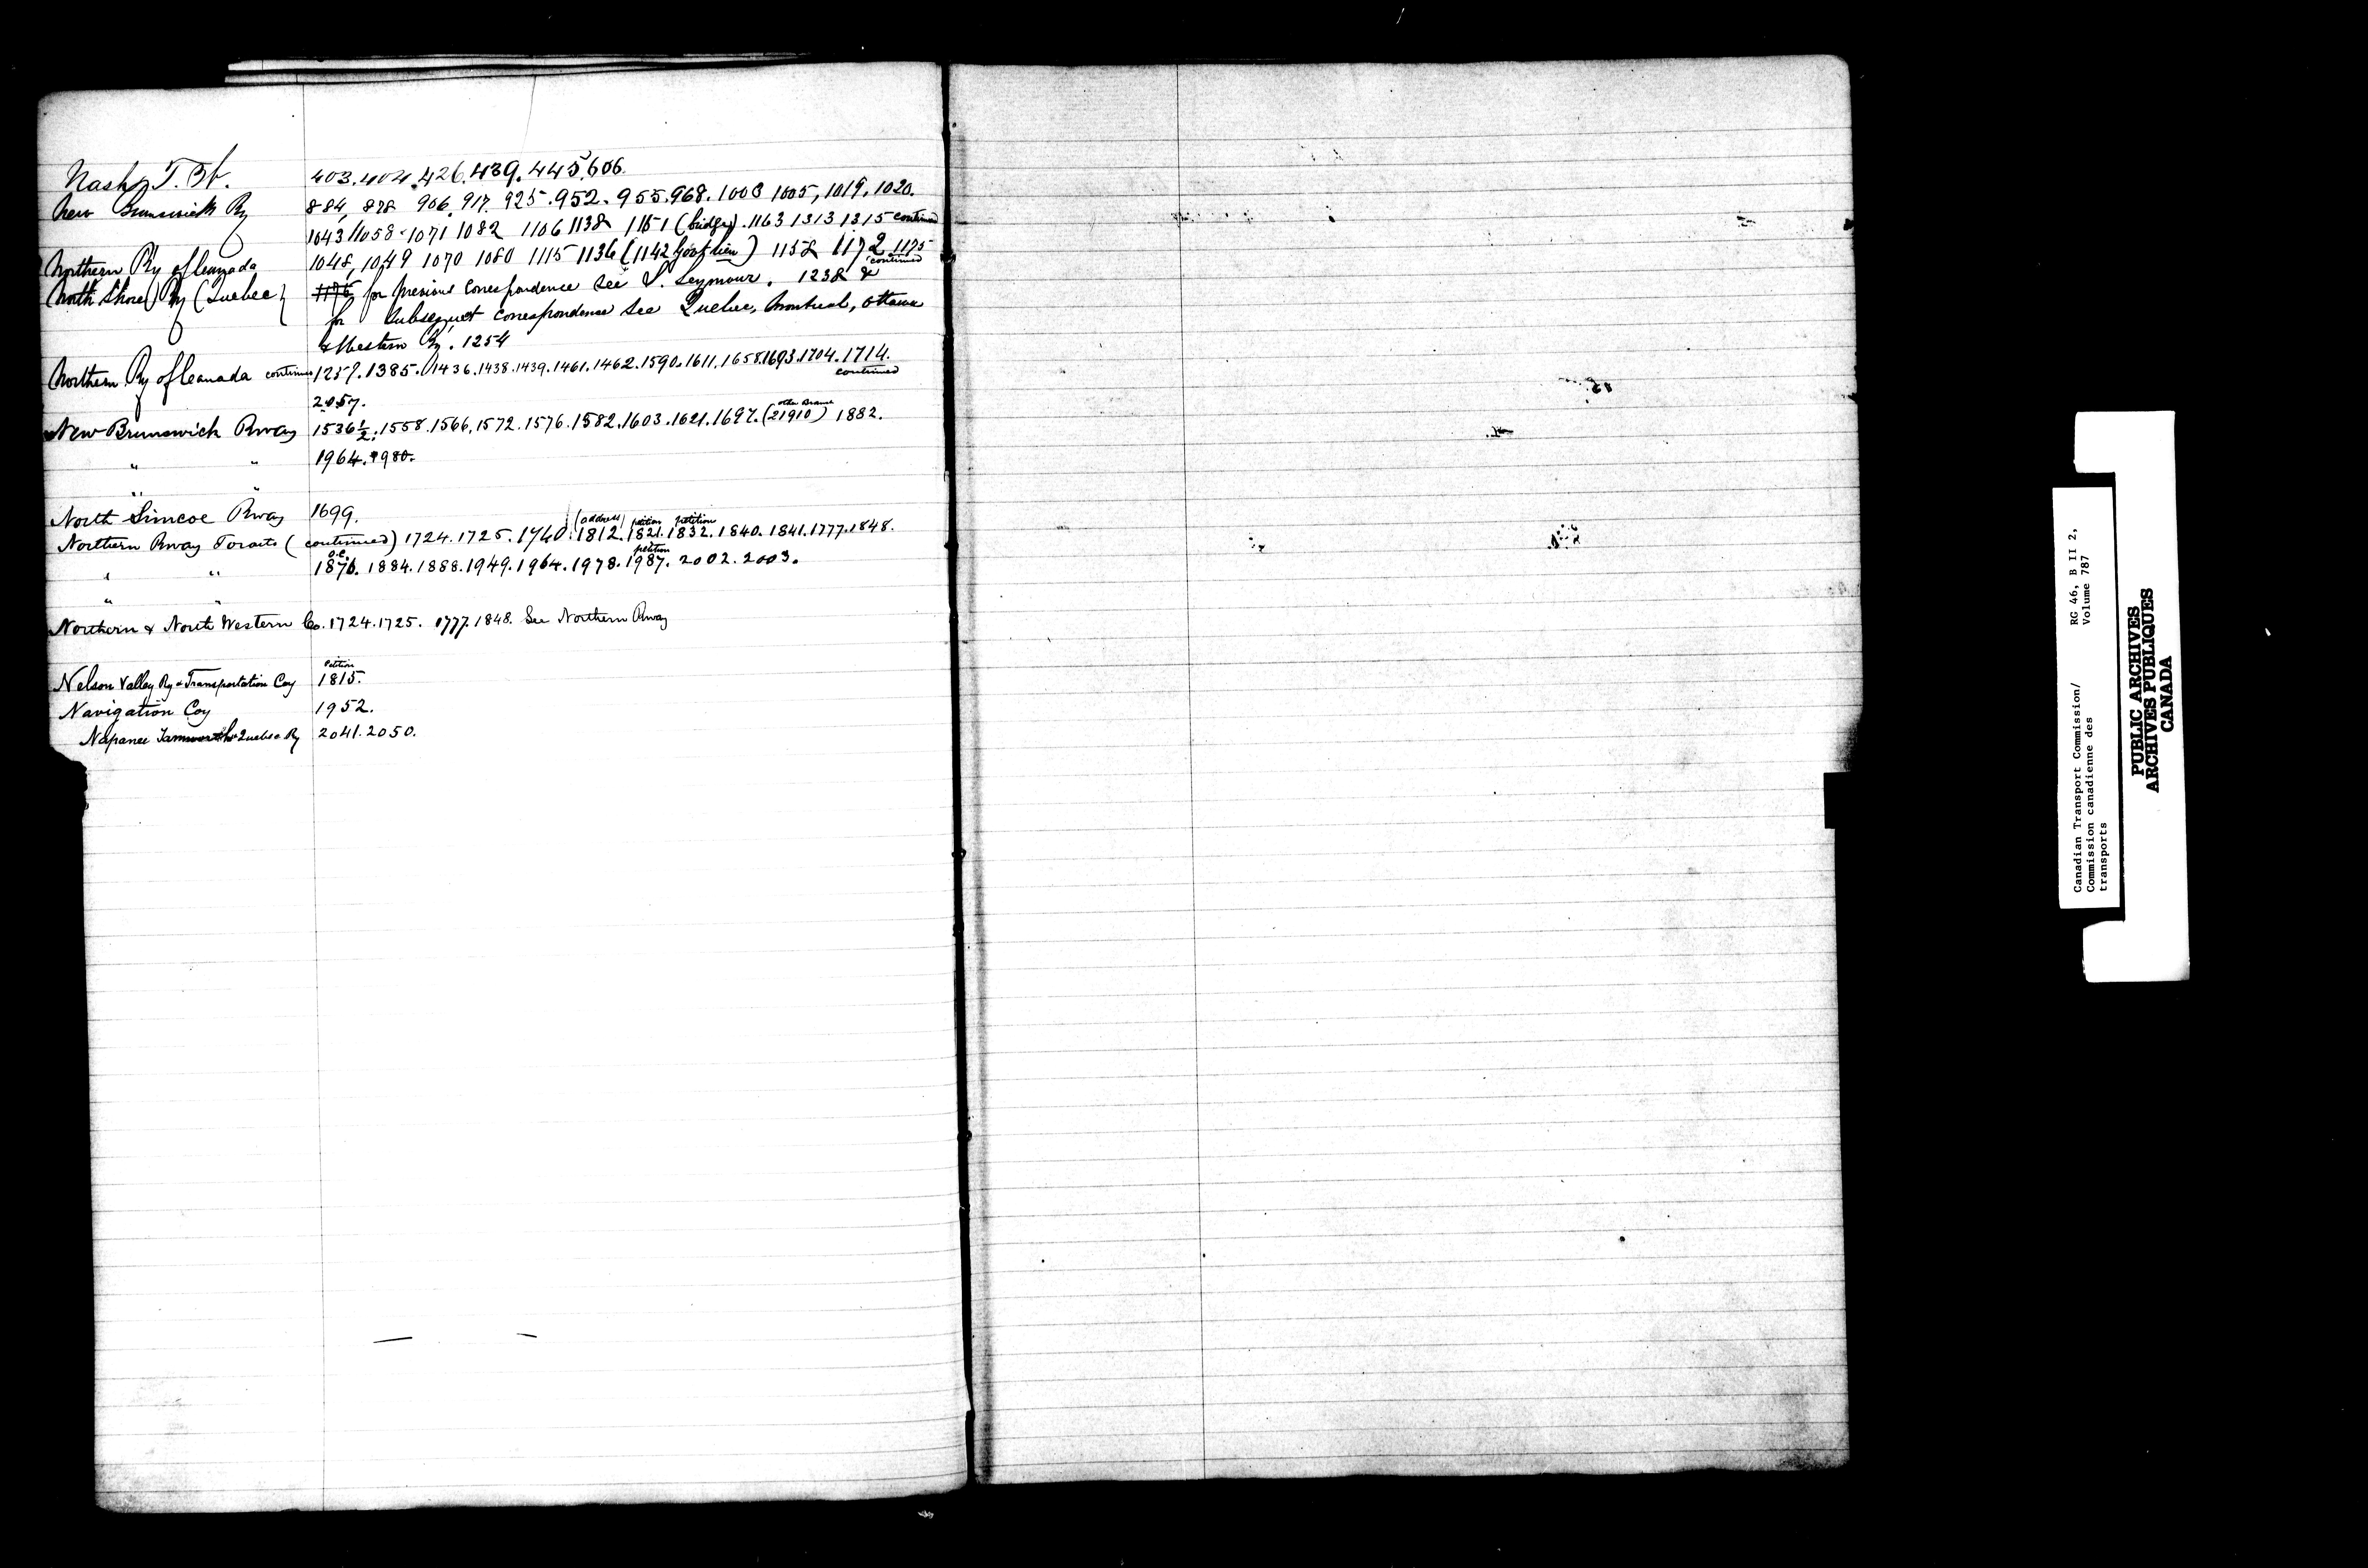 Nash, T. W. 403. 404. 426. 439. 445. 606.
New Brunswick Ry 884, 878 906. 917. 925. 952. 955. 968. 1003 1005, 1019, 1020.
1043 1058 1071 1082 1106 1138 1151 (bridge). 1163 1313 1315 continued
Northern Ry of Canada 1048, 1049 1070 1080 1115 1136 (1142 Govt lien) 1158 1172 1175 continued
North Shore Ry (Quebec) 1176 for previous correspondence see S. Seymour. 1238 &
for subsequent correspondence see Quebec, Montreal, Ottawa
& Western Ry. 1254
Northern Ry of Canada continued 1257. 1385. 1436. 1438. 1439. 1461. 1462. 1590. 1611. 1658. 1693. 1704. 1714. continued
2057.
New Brunswick Rway 1536½. 1558. 1566. 1572. 1576. 1582. 1603. 1621. 1697. (21910 other Branch) 1882.
" " 1964. 1980.
" "
North Simcoe Rway 1699.
Northern Rway Toronto (continued) 1724. 1725. 1740. (address) 1812. petition 1821. petition 1832. 1840. 1841. 1777. 1848.
" " O.C. 1876. 1884. 1888. 1949. 1964. 1978. petition 1987. 2002. 2003.
" "
Northern & North Western Co. 1724. 1725. 1777. 1848. See Northern Rway
Nelson Valley Ry & Transportation Coy Petition 1815.
Navigation Coy 1952.
Napanee Tamworth & Quebec Ry 2041. 2050.
Canadian Transport Commission/ RG 46, B II 2,
Commission canadienne des Volume 787
transports
PUBLIC ARCHIVES
ARCHIVES PUBLIQUES
CANADA